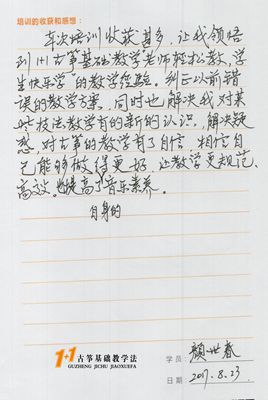 培训的收获和感想:
本次培训收获甚多,让我领悟
到1+1古筝基础教学"老师轻松教,学
生快乐学"的教学经验。纠正以前错
误的教学方案,同时也解决我对某
些技法教学有的新的认识,解决疑
惑,对古筝的教学有了自信,相信自
己能够做得更好,让教学更规范、
高效。也提高了音乐素养。
自身的
1+1古筝基础教学法
GUZHENG JICHU JIAOXUEFA
学员: 颜世春
日期: 2017.8.23.